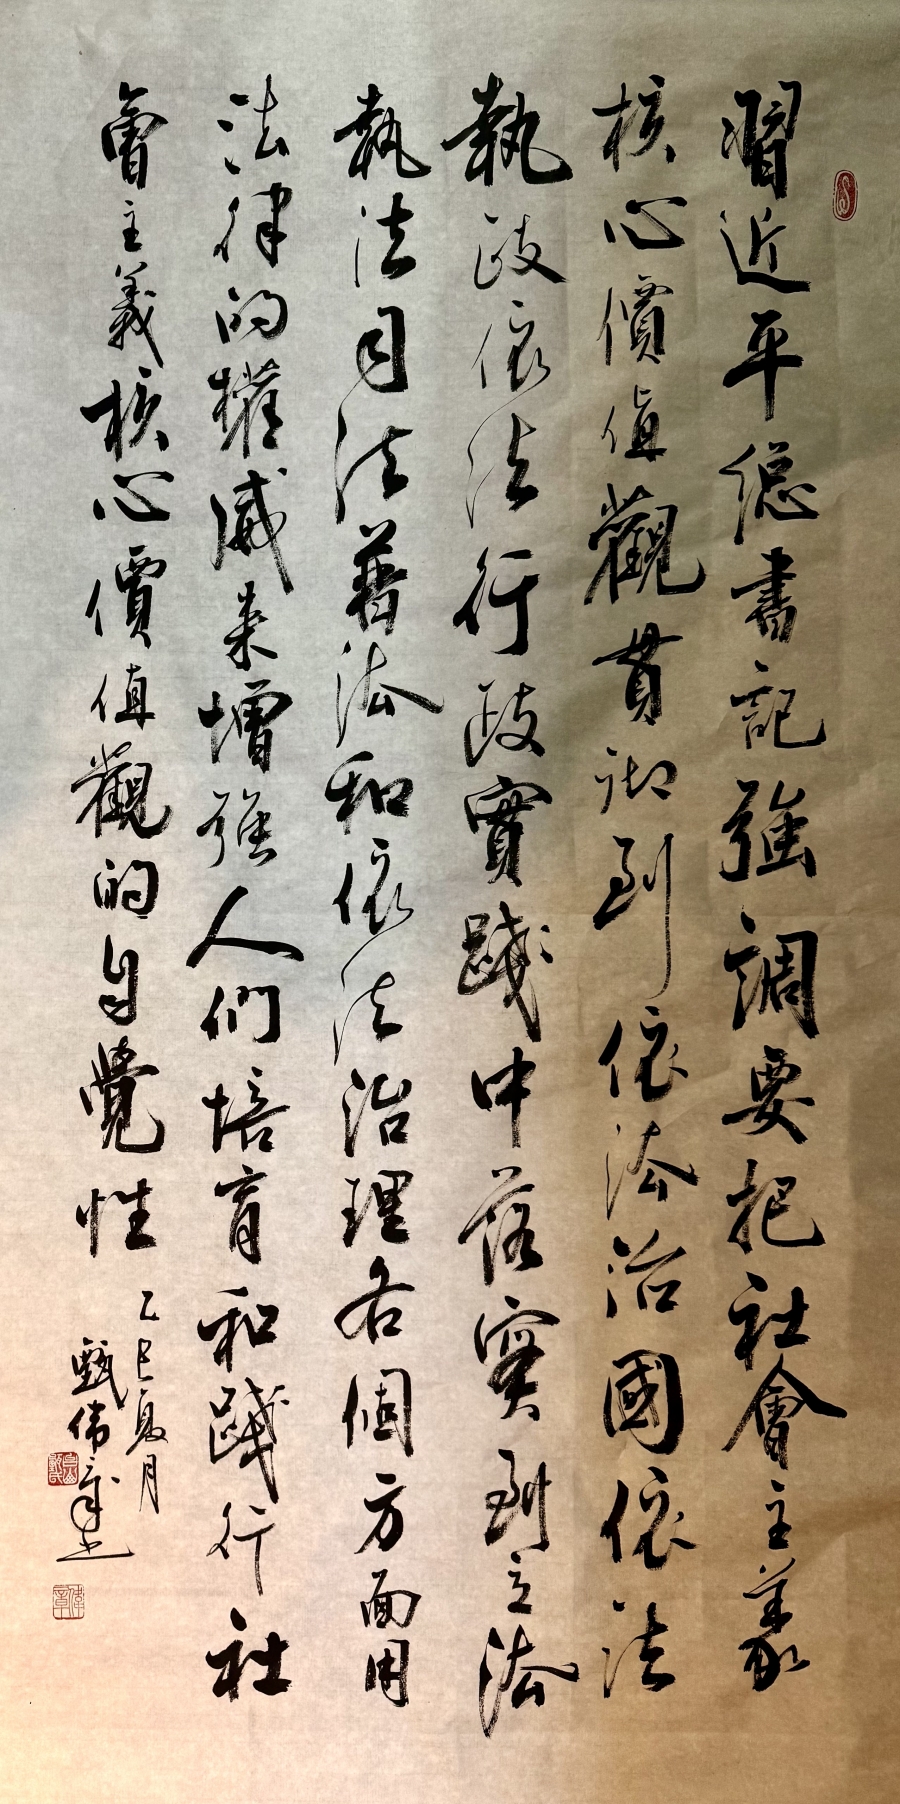 習近平總書記強調要把社會主義
核心價值觀貫彻到依法治國依法
執政依法行政實踐中落实到立法
執法司法普法和依法治理各個方面用
法律的權威来增强人們培育和踐行社
會主義核心價值觀的自覺性
乙巳夏月
甄偉章书